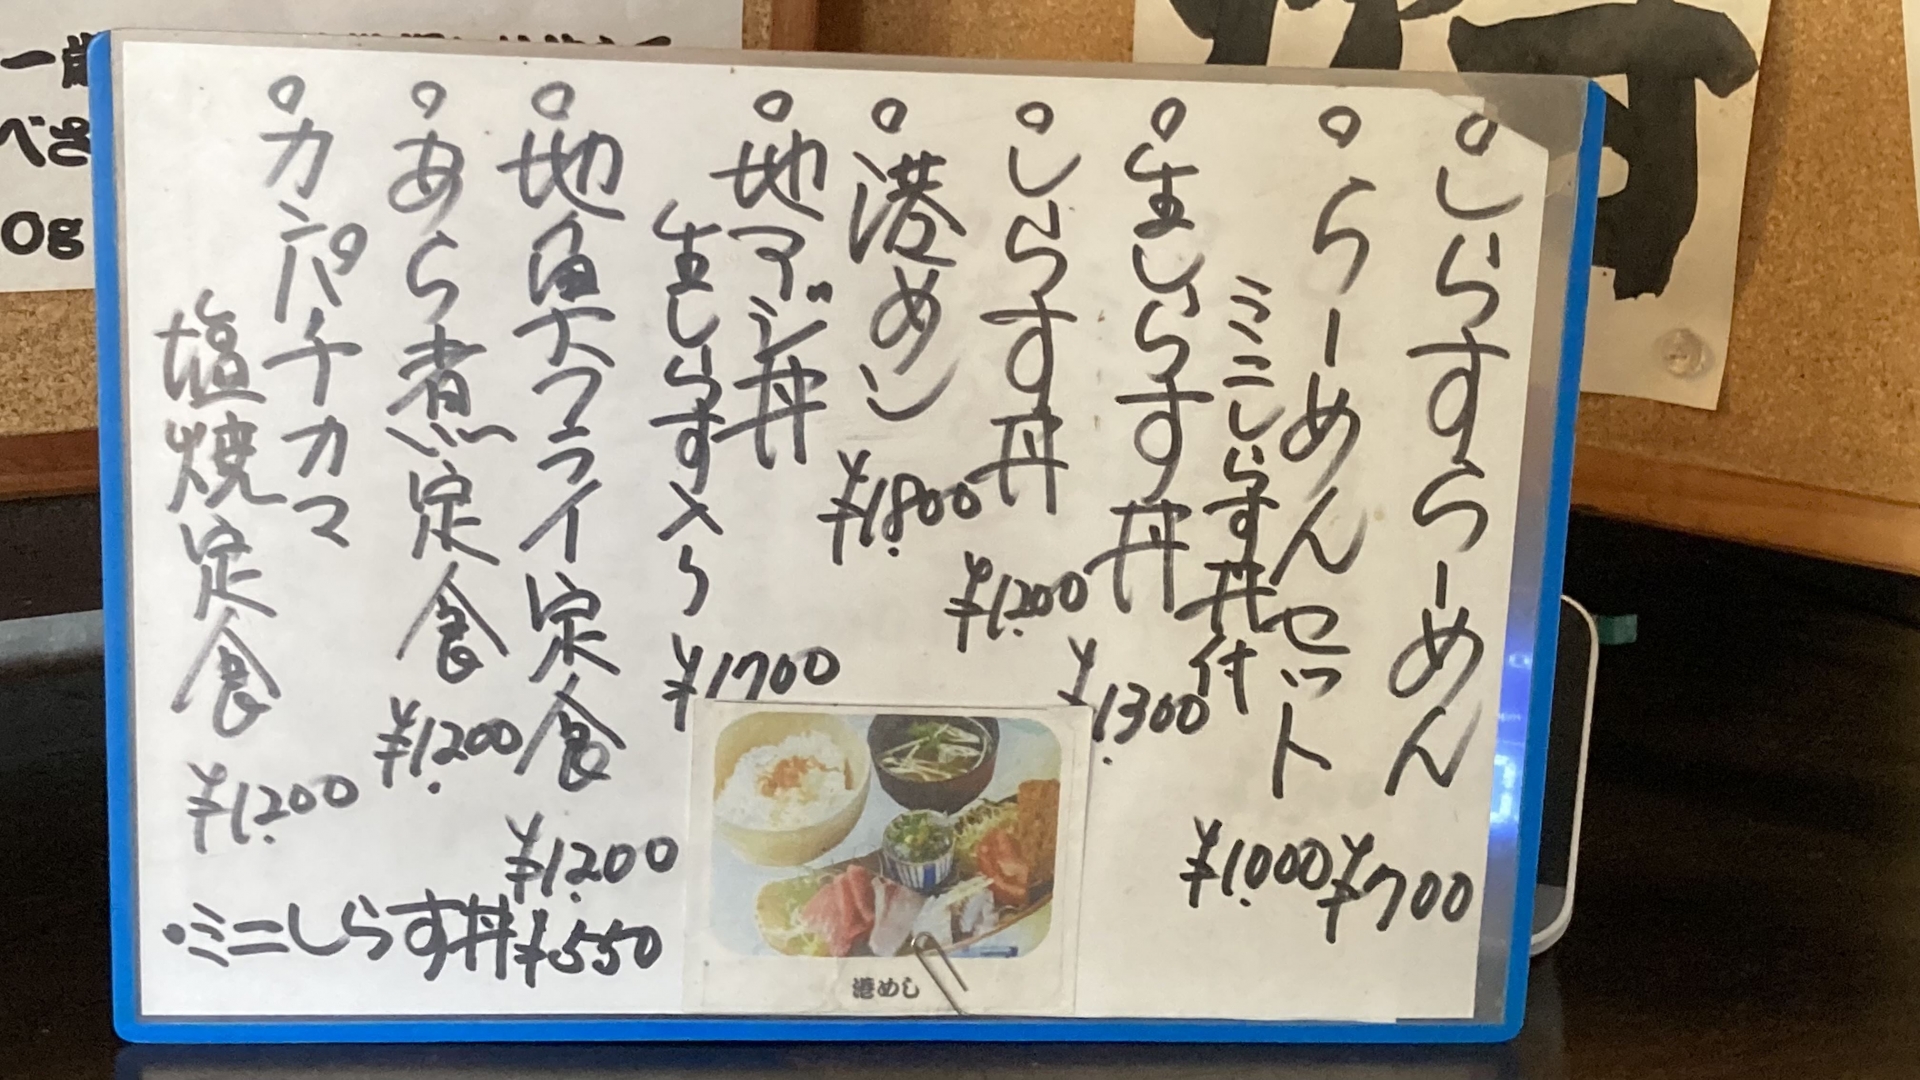 しらすらーめん ¥700
らーめんセット
ミニしらす丼付 ¥1.000
生しらす丼 ¥1.300
しらす丼 ¥1.200
港めし ¥1.800
地アジ丼
生しらす入り ¥1700
地魚フライ定食 ¥1.200
あら煮定食 ¥1.200
カンパチカマ
塩焼定食 ¥1.200
・ミニしらす丼 ¥550
港めし
一歳
べさ
0g